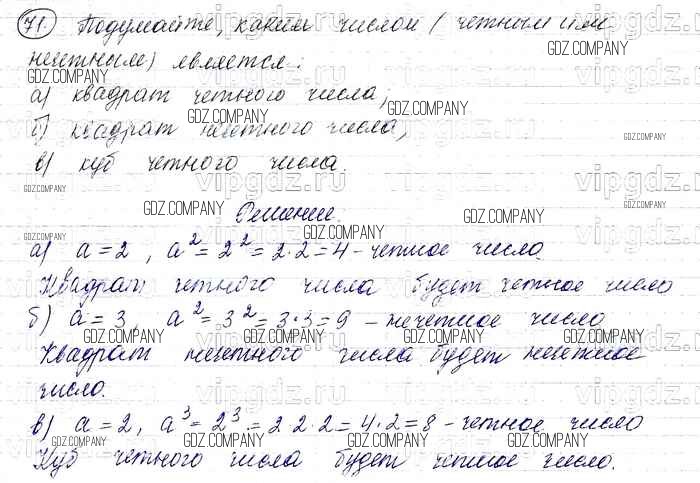 71. Подумайте, каким числом (четным или
нечетным) является:
а) квадрат четного числа;
б) квадрат нечетного числа;
в) куб четного числа.
Решение.
а) a = 2, a² = 2² = 2·2 = 4 - четное число.
Квадрат четного числа будет четное число
б) a = 3, a² = 3² = 3·3 = 9 - нечетное число
Квадрат нечетного числа будет нечетное
число.
в) a = 2, a³ = 2³ = 2·2·2 = 4·2 = 8 - четное число
Куб четного числа будет четное число.
GDZ.COMPANY
vipgdz.ru